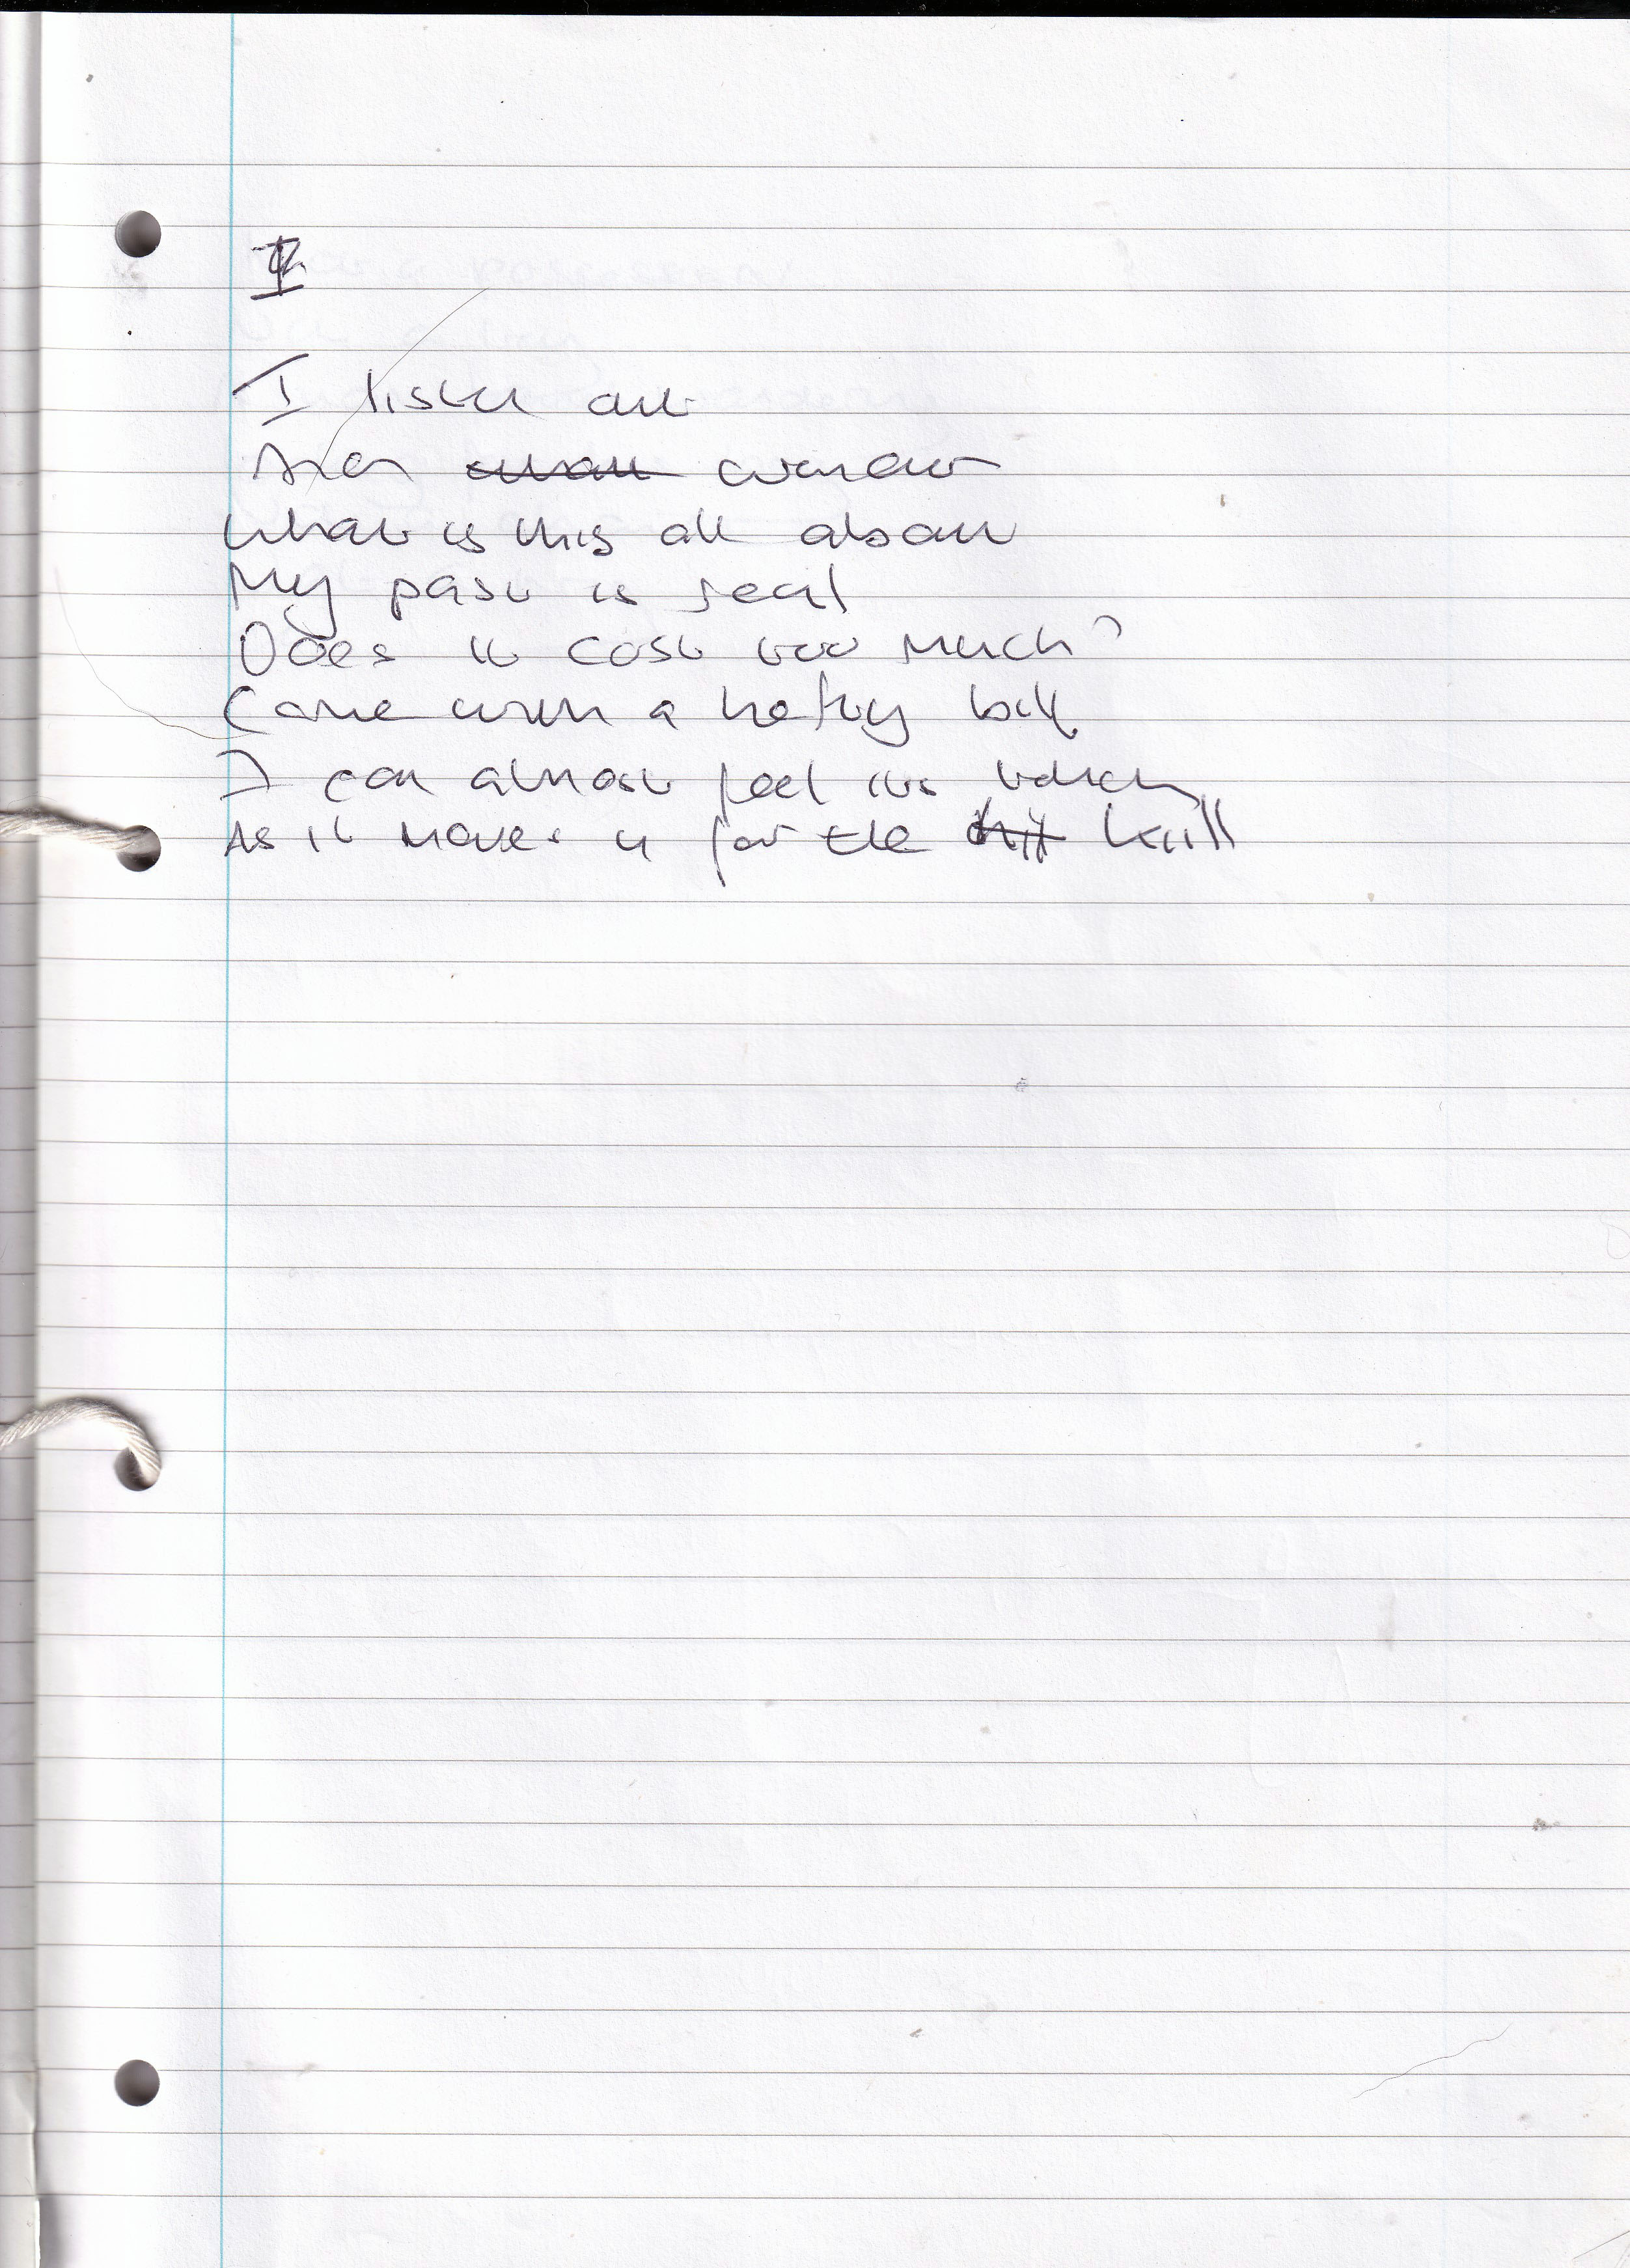 I listen and
then wonder
What is this all about
My past is real
Does it cost too much?
Come with a hefty bill
I can almost feel its touch
As it moves in for the kill